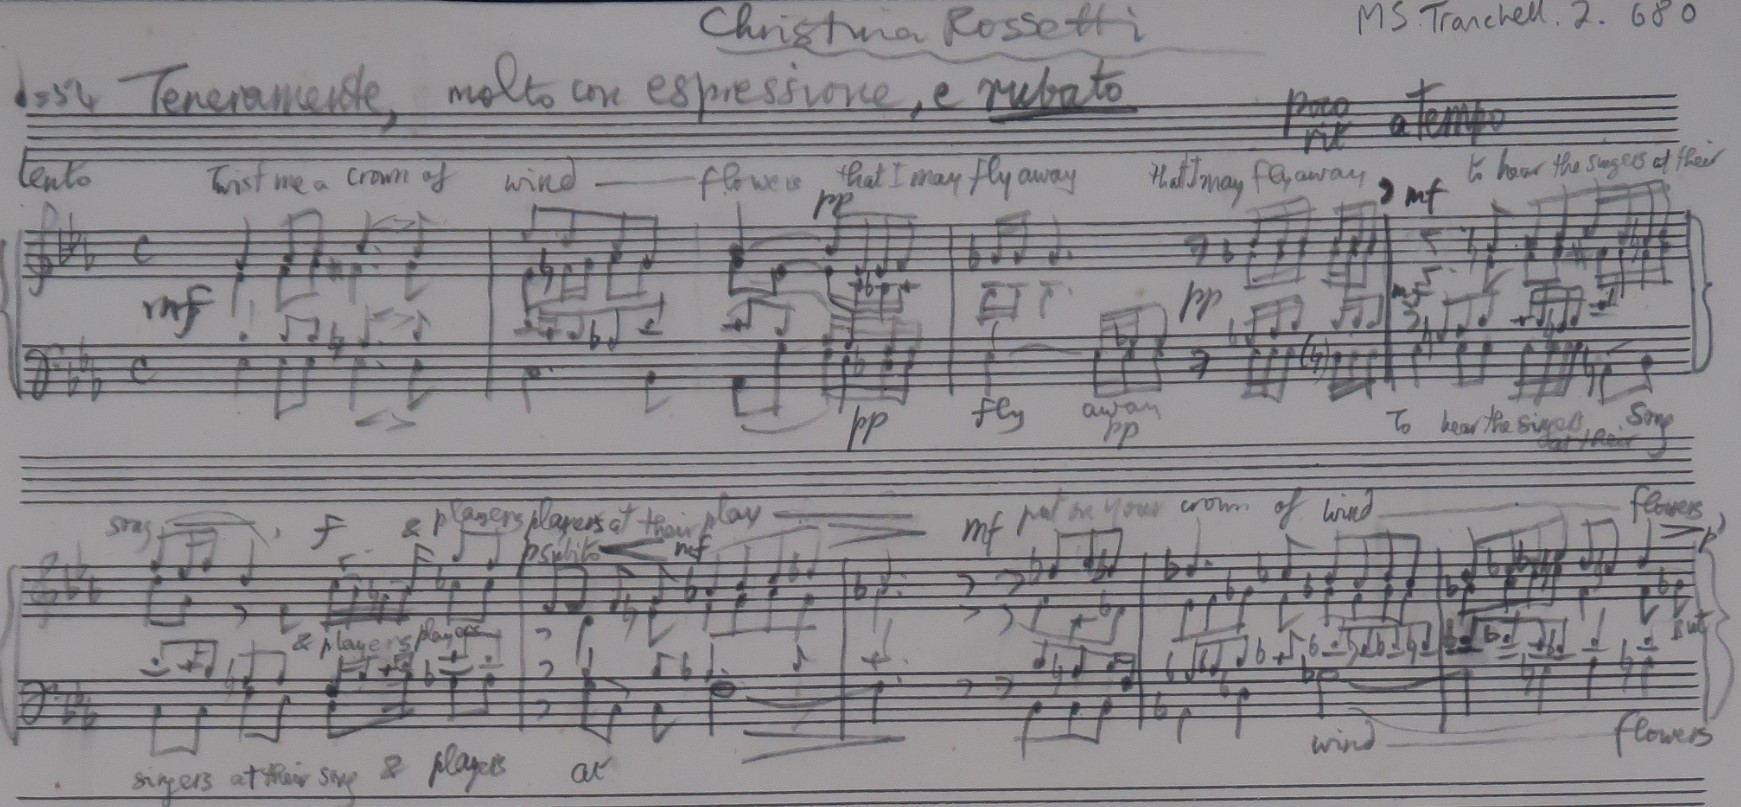 Christina Rossetti
MS. Tranchell. 2. 680
♩=54 Teneramente, molto con espressione, e rubato
poco rit a Tempo
Lento Twist me a crown of wind — flowers that I may fly away that I may fly away , mf to hear the singers at their
pp
C
mf pp mf
C
pp fly away pp To hear the singers at their song
song , f & players players at their play mf put on your crown of wind flowers p
p subito mf
& players players
but
singers at their song & players at wind flowers